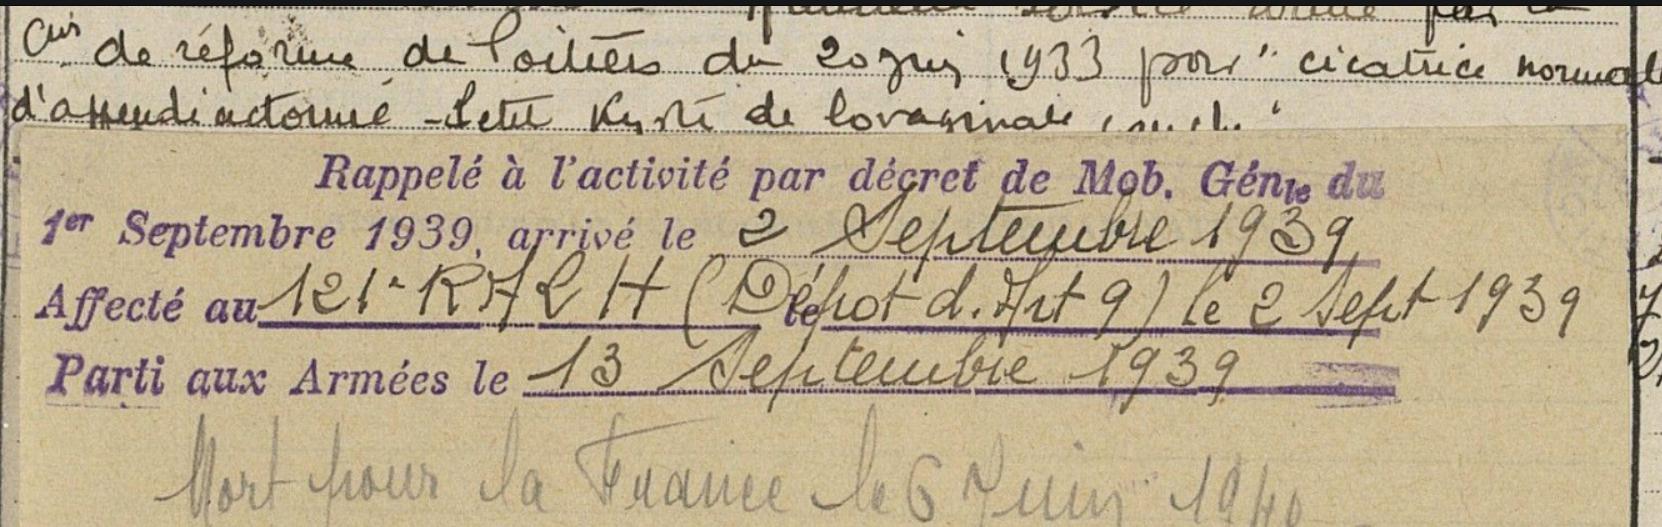 service armé par la
Con de réforme de Poitiers du 20 juin 1933 pour "cicatrice normale
d'appendicectomie - Petit Kyste de la vaginale
Rappelé à l'activité par décret de Mob. Génle du
1er Septembre 1939, arrivé le 2 Septembre 1939
Affecté au 121e R A L H (Dépôt d. Art 9) le 2 Sept 1939
Parti aux Armées le 13 Septembre 1939
Mort pour la France le 6 Juin 1940